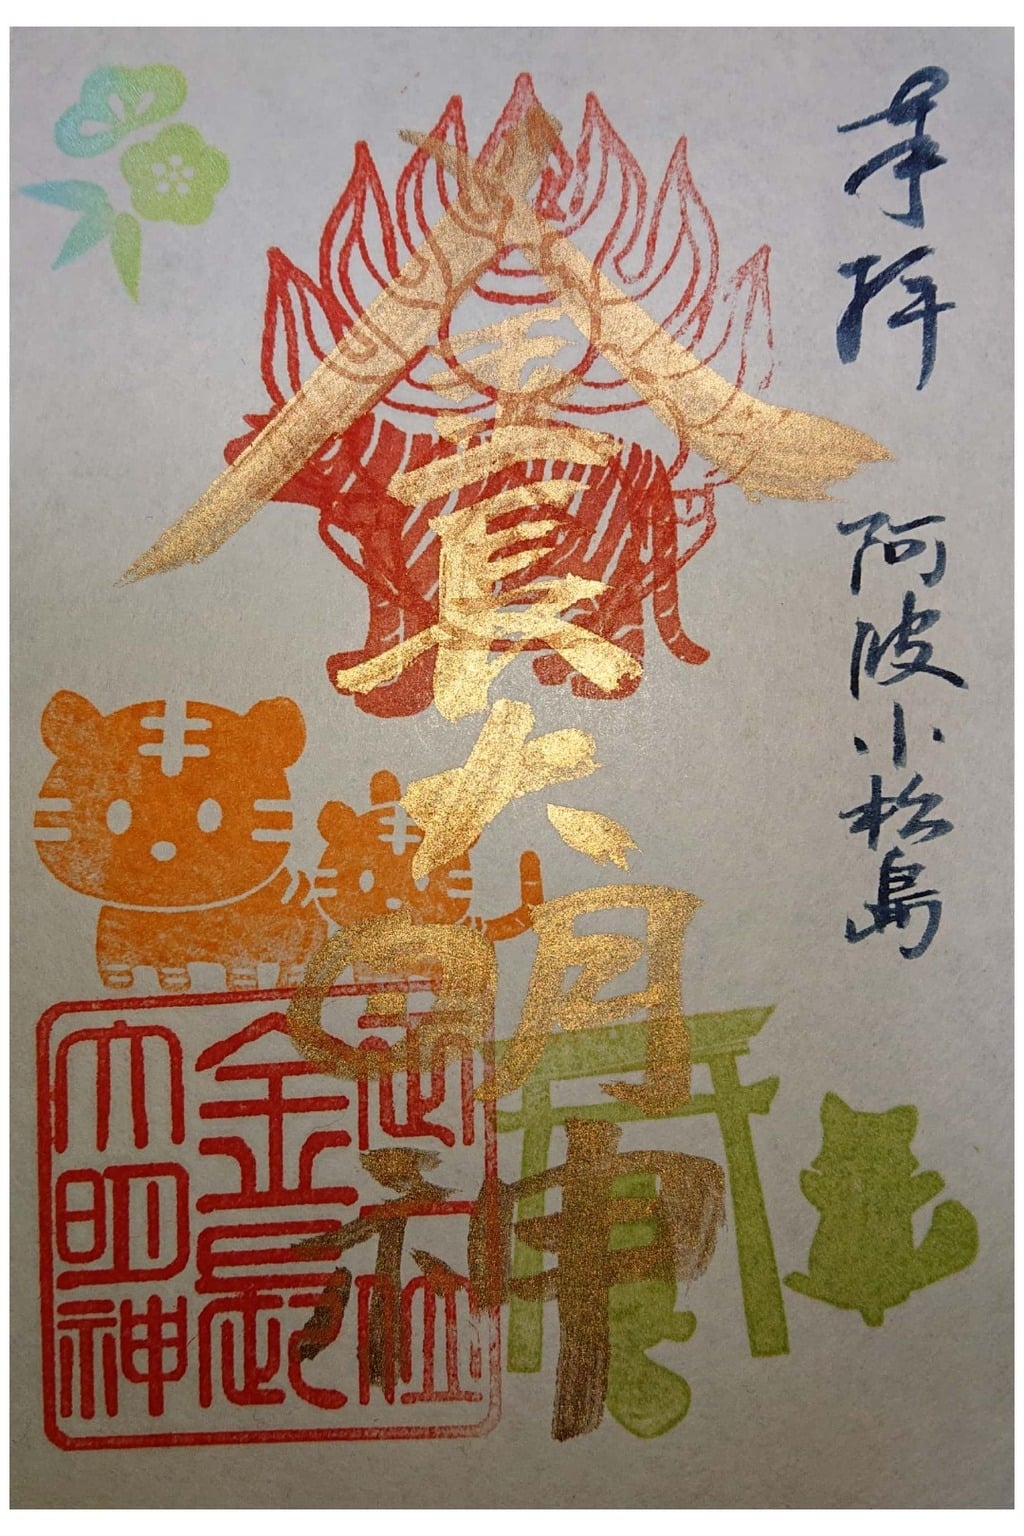 奉拝　阿波小松島
金長大明神
正一位
金長
大明神